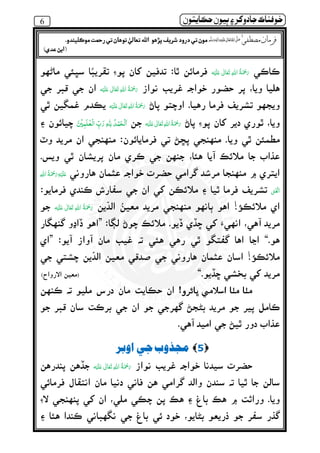 خوفناڪ جادوگر ۽ ٻيون حڪايتون 6
فرمانِ مصطفيٰ صلى الله تعالى عليه واله وسلم: مون تي درود شريف پڙهو الله تعاليٰ توهان تي رحمت موڪليندو.
(ابن عدي)
ڪاڪي رَحْمَةُ اللهِ تَعَالٰى عَلَيْه فرمائن ٿا: تدفين کان پوءِ تقريبًا سڀئي ماڻهو
هليا ويا، پر حضور خواجہ غريب نواز رَحْمَةُ اللهِ تَعَالٰى عَلَيْه ان جي قبر جي
ويجهو تشريف فرما رهيا. اوچتو پاڻ رَحْمَةُ اللهِ تَعَالٰى عَلَيْه يڪدم غمگين ٿي
ويا، ٿوري دير کان پوءِ پاڻ رَحْمَةُ اللهِ تَعَالٰى عَلَيْه جن اَلْحَمْدُ لِلّٰهِ رَبِّ الْعٰلَمِيْنَ چيائون ۽
مطمئن ٿي ويا. منهنجي پڇڻ تي فرمايائون: منهنجي ان مريد وٽ
عذاب جا ملائڪ آيا هئا، جنهن جي ڪري مان پريشان ٿي ويس.
ايتري ۾ منهنجا مرشد گرامي حضرت خواجہ عثمان هاروني رَحْمَةُ اللهِ تَعَالٰى عَلَيْه
تشريف فرما ٿيا ۽ ملائڪن کي ان جي سفارش ڪندي فرمايو:
اي ملائڪؤ! اهو ٻانهو منهنجي مريد معينُ الدّين رَحْمَةُ اللهِ تَعَالٰى عَلَيْه جو
مريد آهي، انهيءَ کي ڇڏي ڏيو. ملائڪ چوڻ لڳا: ”اهو ڏاڍو گنهگار
هو.“ اڃا اها گفتگو ٿي رهي هئي تہ غيب مان آواز آيو: ”اي
ملائڪؤ! اسان عثمان هاروني جي صدقي معين الدّين چشتي جي
مريد کي بخشي ڇڏيو.“ (معين الارواح)
مٺا مٺا اسلامي ڀائرو! ان حڪايت مان درس مليو تہ ڪنهن
ڪامل پير جو مريد بڻجڻ گهرجي جو ان جي برڪت سان قبر جو
عذاب دور ٿيڻ جي اميد آهي.
﴿5﴾ مجذوب جي اوبر
حضرت سيدنا خواجہ غريب نواز رَحْمَةُ اللهِ تَعَالٰى عَلَيْه جڏهن پندرهن
سالن جا ٿيا تہ سندن والد گرامي هن فاني دنيا مان انتقال فرمائي
ويا. وراثت ۾ هڪ باغ ۽ هڪ پن چڪي ملي، ان کي پنهنجي لاءِ
گذر سفر جو ذريعو بڻايو، خود ئي باغ جي نگهباني ڪندا هئا ۽